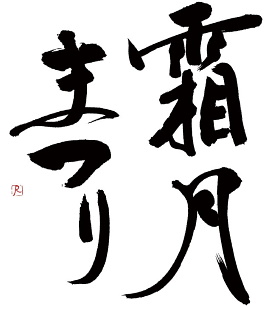 霜月
まつり